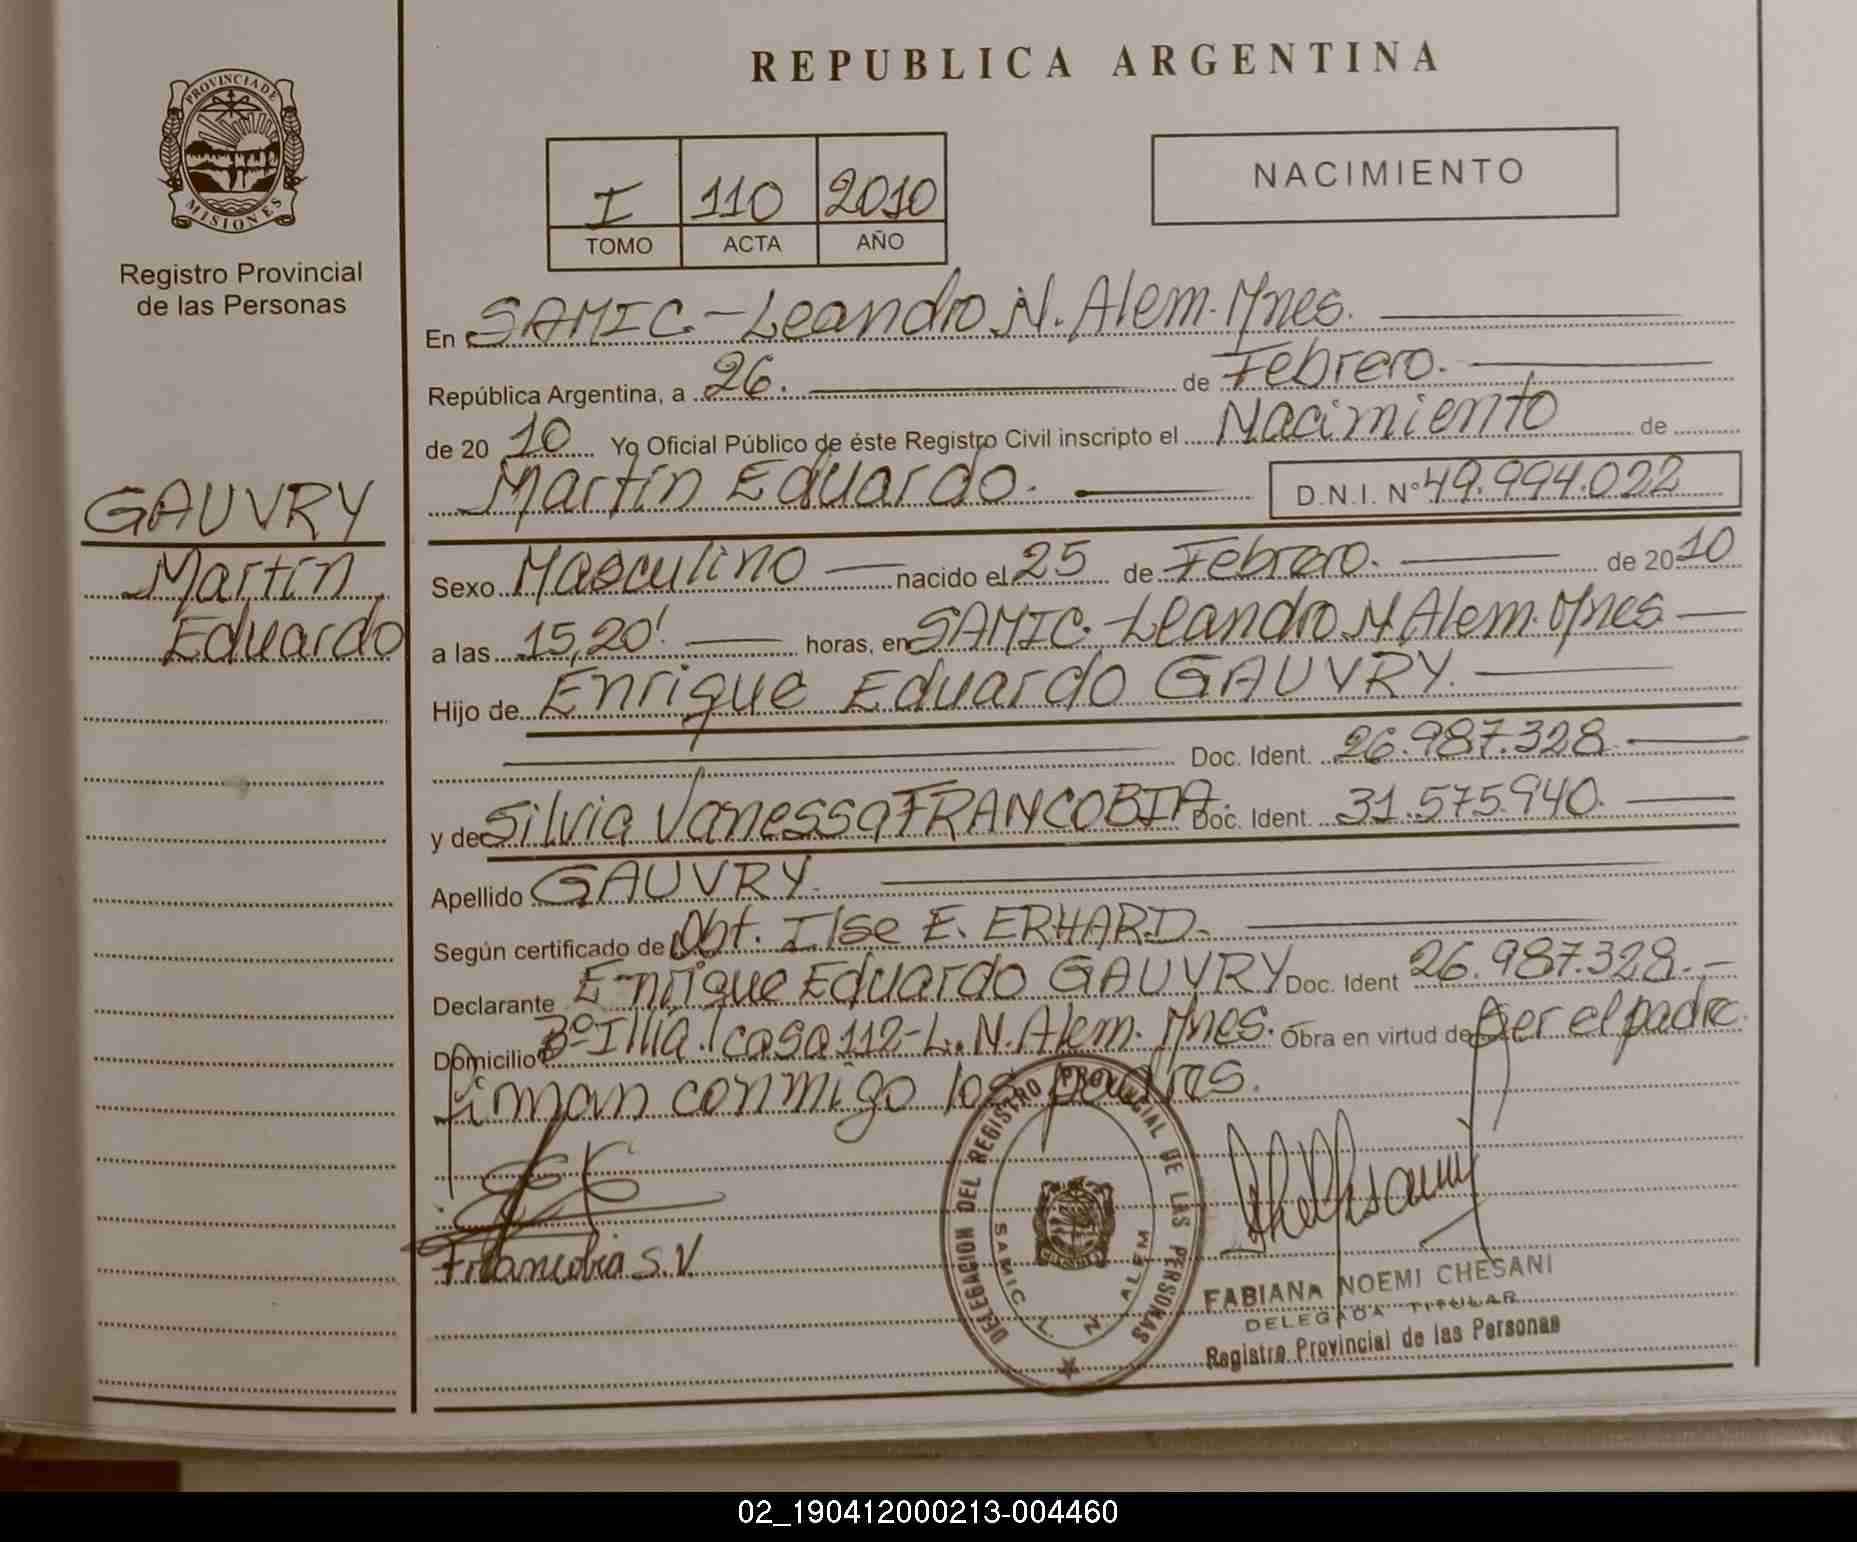 REPUBLICA ARGENTINA
PROVINCIA DE
MISIONES
Registro Provincial
de las Personas
I 110 2010
TOMO ACTA AÑO
NACIMIENTO
En SAMIC.-Leandro N. Alem. Mnes.
República Argentina, a 26. de Febrero.
de 20 10 Yo Oficial Público de éste Registro Civil inscripto el Nacimiento de
Martín Eduardo. D.N.I. Nº 49.994.022
GAUVRY
Martín
Eduardo
Sexo Masculino nacido el 25 de Febrero. de 2010
a las 15,20' horas, en SAMIC.-Leandro N. Alem. Mnes
Hijo de Enrique Eduardo GAUVRY.
Doc. Ident. 26.987.328
y de Silvia Vanessa FRANCOBIA. Doc. Ident. 31.575.940.
Apellido GAUVRY.
Según certificado de Obt. Ilse E. ERHARD.
Declarante Enrique Eduardo GAUVRY Doc. Ident 26.987.328.-
Domicilio Bº Illia. casa 112-L. N. Alem. Mnes. Obra en virtud de Ser el padre.
Firman conmigo los padres.
Francobia S.V.
DELEGACION DEL REGISTRO PROVINCIAL DE LAS PERSONAS
SAMIC L. N. ALEM
FABIANA NOEMI CHESANI
DELEGADA TITULAR
Registro Provincial de las Personas
02_190412000213-004460